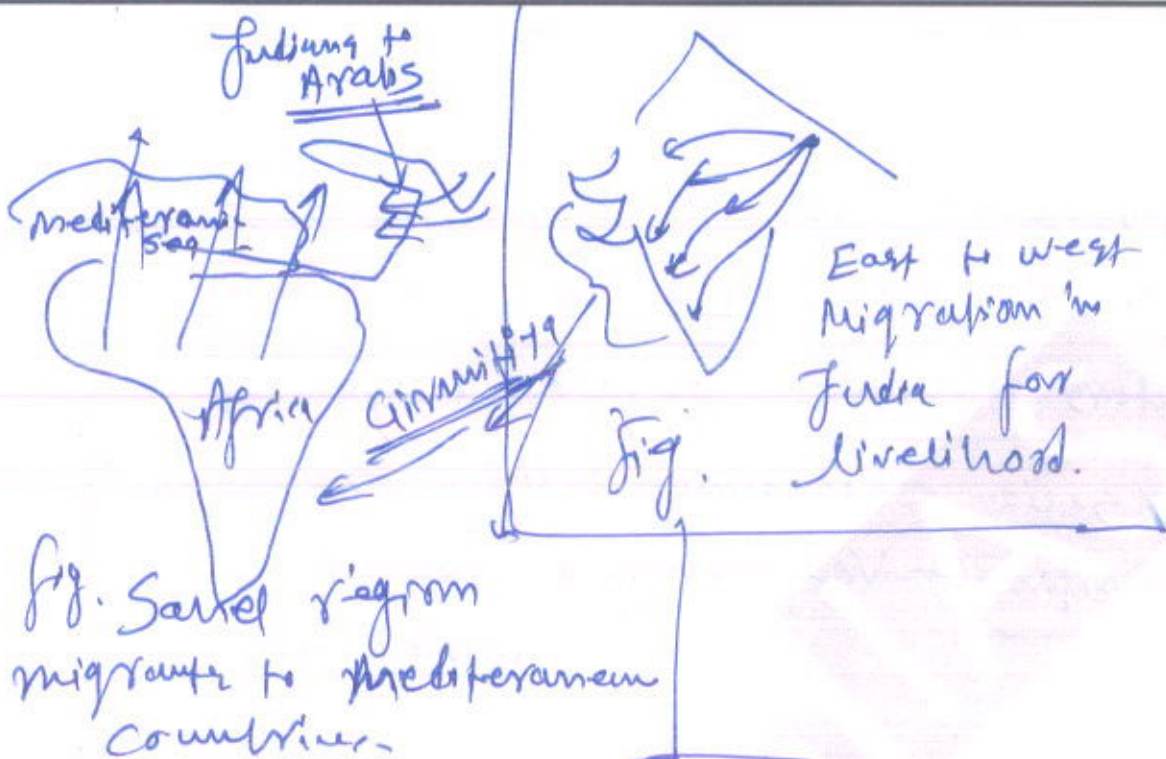 Indians to
Arabs
mediterani
sea
Africa
Girmitiya
fig. Sahel region
migrants to Mediteranean
countries.
East to west
Migration in
India for
livelihood.
Fig.